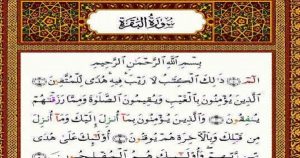 سُورَةُ البَقَرَةِ
بِسْمِ اللَّهِ الرَّحْمَٰنِ الرَّحِيمِ
الٓمٓ ذَٰلِكَ الْكِتَٰبُ لَا رَيْبَ فِيهِ هُدًى لِّلْمُتَّقِينَ
الَّذِينَ يُؤْمِنُونَ بِالْغَيْبِ وَيُقِيمُونَ الصَّلَوٰةَ وَمِمَّا رَزَقْنَٰهُمْ
يُنفِقُونَ وَالَّذِينَ يُؤْمِنُونَ بِمَا أُنزِلَ إِلَيْكَ وَمَا أُنزِلَ
مِن قَبْلِكَ وَبِالْآخِرَةِ هُمْ يُوقِنُونَ أُوْلَٰئِكَ عَلَىٰ هُدًى
مِّن رَّبِّهِمْ وَأُوْلَٰئِكَ هُمُ الْمُفْلِحُونَ